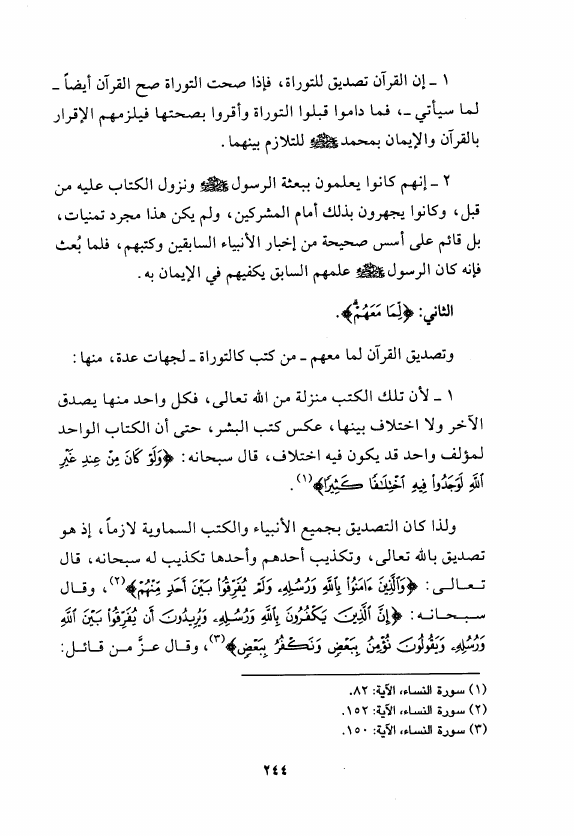 ١ ـ إن القرآن تصديق للتوراة، فإذا صحت التوراة صح القرآن أيضاً ـ
لما سيأتي ـ، فما داموا قبلوا التوراة وأقروا بصحتها فيلزمهم الإقرار
بالقرآن والإيمان بمحمد ﷺ للتلازم بينهما.
٢ ـ إنهم كانوا يعلمون ببعثة الرسول ﷺ ونزول الكتاب عليه من
قبل، وكانوا يجهرون بذلك أمام المشركين، ولم يكن هذا مجرد تمنيات،
بل قائم على أسس صحيحة من إخبار الأنبياء السابقين وكتبهم، فلما بُعث
فإنه كان الرسول ﷺ علمهم السابق يكفيهم في الإيمان به.
الثاني: ﴿لِّمَا مَعَهُمْ﴾.
وتصديق القرآن لما معهم ـ من كتب كالتوراة ـ لجهات عدة، منها:
١ ـ لأن تلك الكتب منزلة من الله تعالى، فكل واحد منها يصدق
الآخر ولا اختلاف بينها، عكس كتب البشر، حتى أن الكتاب الواحد
لمؤلف واحد قد يكون فيه اختلاف، قال سبحانه: ﴿وَلَوْ كَانَ مِنْ عِندِ غَيْرِ
اللَّهِ لَوَجَدُوا۟ فِيهِ ٱخْتِلَـٰفًا كَثِيرًا﴾(١).
ولذا كان التصديق بجميع الأنبياء والكتب السماوية لازماً، إذ هو
تصديق بالله تعالى، وتكذيب أحدهم وأحدها تكذيب له سبحانه، قال
تعالى: ﴿وَالَّذِينَ ءَامَنُوا۟ بِاللَّهِ وَرُسُلِهِۦ وَلَمْ يُفَرِّقُوا۟ بَيْنَ أَحَدٍ مِّنْهُمْ﴾(٢)، وقال
سبحانه: ﴿إِنَّ الَّذِينَ يَكْفُرُونَ بِاللَّهِ وَرُسُلِهِۦ وَيُرِيدُونَ أَن يُفَرِّقُوا۟ بَيْنَ اللَّهِ
وَرُسُلِهِۦ وَيَقُولُونَ نُؤْمِنُ بِبَعْضٍ وَنَكْفُرُ بِبَعْضٍ﴾(٣)، وقال عزَّ من قائل:
(١) سورة النساء، الآية: ٨٢.
(٢) سورة النساء، الآية: ١٥٢.
(٣) سورة النساء، الآية: ١٥٠.
٢٤٤